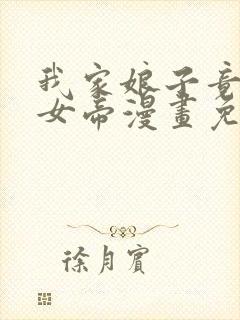 我家娘子竟
女帝漫畫免
徐月賓